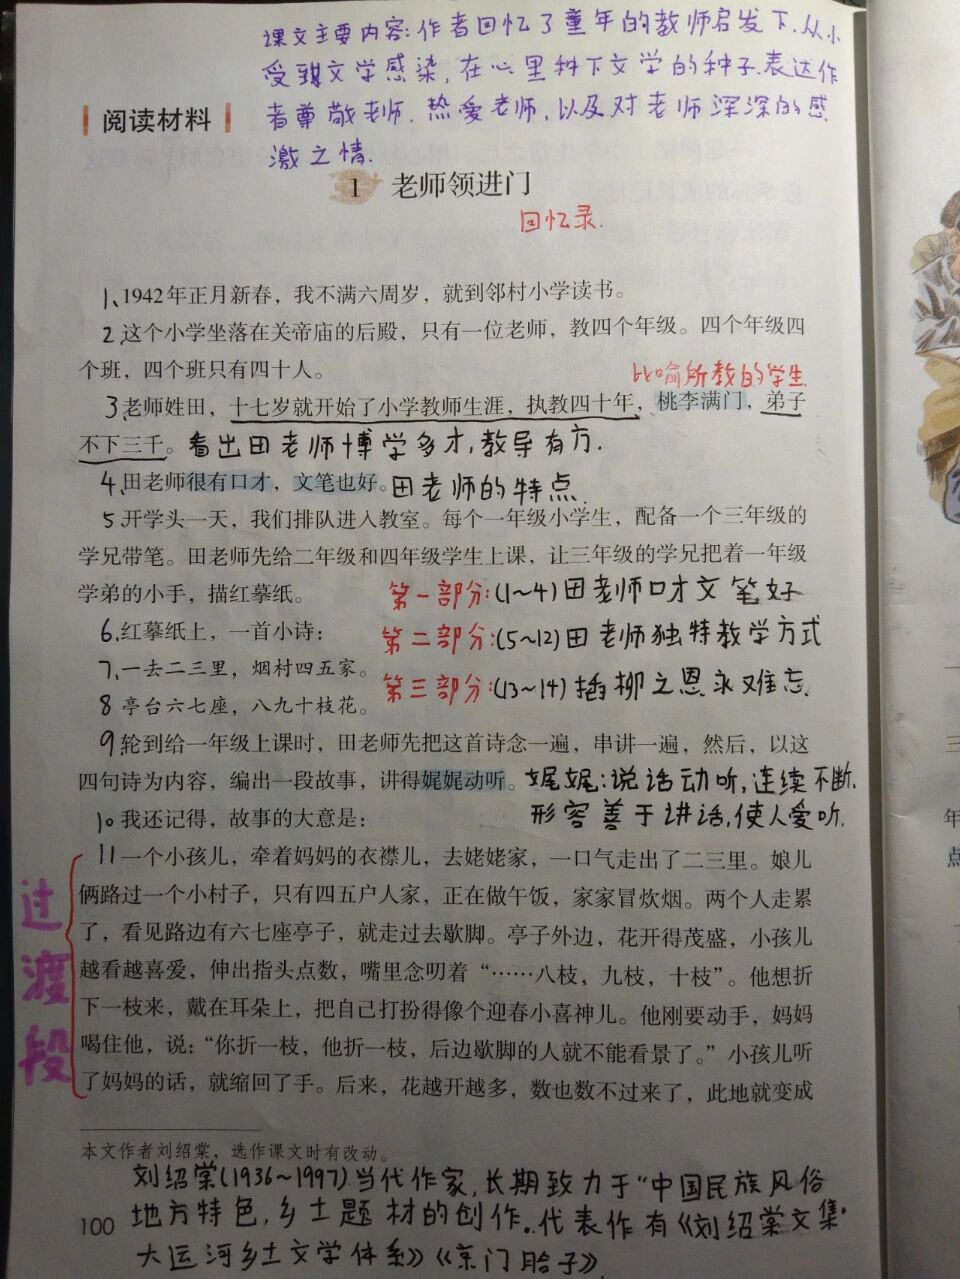 课文主要内容:作者回忆了童年的教师启发下.从小
受到文学感染,在心里种下文学的种子.表达作
者尊敬老师.热爱老师,以及对老师深深的感
激之情.
阅读材料
1 老师领进门
回忆录.
1、1942年正月新春，我不满六周岁，就到邻村小学读书。
2、这个小学坐落在关帝庙的后殿，只有一位老师，教四个年级。四个年级四
个班，四个班只有四十人。
比喻所教的学生.
3、老师姓田，十七岁就开始了小学教师生涯，执教四十年，桃李满门，弟子
不下三千。看出田老师博学多才,教导有方.
4、田老师很有口才，文笔也好。田老师的特点.
5、开学头一天，我们排队进入教室。每个一年级小学生，配备一个三年级的
学兄带笔。田老师先给二年级和四年级学生上课，让三年级的学兄把着一年级
学弟的小手，描红摹纸。
第一部分:(1~4)田老师口才文笔好
6、红摹纸上，一首小诗：
第二部分:(5~12)田老师独特教学方式
7、一去二三里，烟村四五家。
第三部分:(13~14)插柳之恩永难忘.
8 亭台六七座，八九十枝花。
9、轮到给一年级上课时，田老师先把这首诗念一遍，串讲一遍，然后，以这
四句诗为内容，编出一段故事，讲得娓娓动听。娓娓:说话动听,连续不断.
形容善于讲话,使人爱听.
10、我还记得，故事的大意是：
11 一个小孩儿，牵着妈妈的衣襟儿，去姥姥家，一口气走出了二三里。娘儿
俩路过一个小村子，只有四五户人家，正在做午饭，家家冒炊烟。两个人走累
了，看见路边有六七座亭子，就走过去歇脚。亭子外边，花开得茂盛，小孩儿
越看越喜爱，伸出指头点数，嘴里念叨着“……八枝，九枝，十枝”。他想折
下一枝来，戴在耳朵上，把自己打扮得像个迎春小喜神儿。他刚要动手，妈妈
喝住他，说：“你折一枝，他折一枝，后边歇脚的人就不能看景了。”小孩儿听
了妈妈的话，就缩回了手。后来，花越开越多，数也数不过来了，此地就变成
过渡段
本文作者刘绍棠，选作课文时有改动。
刘绍棠(1936~1997)当代作家,长期致力于“中国民族风俗
地方特色,乡土题材的创作.代表作有《刘绍棠文集·
大运河乡土文学体系》《京门脸子》
100
三
年
点